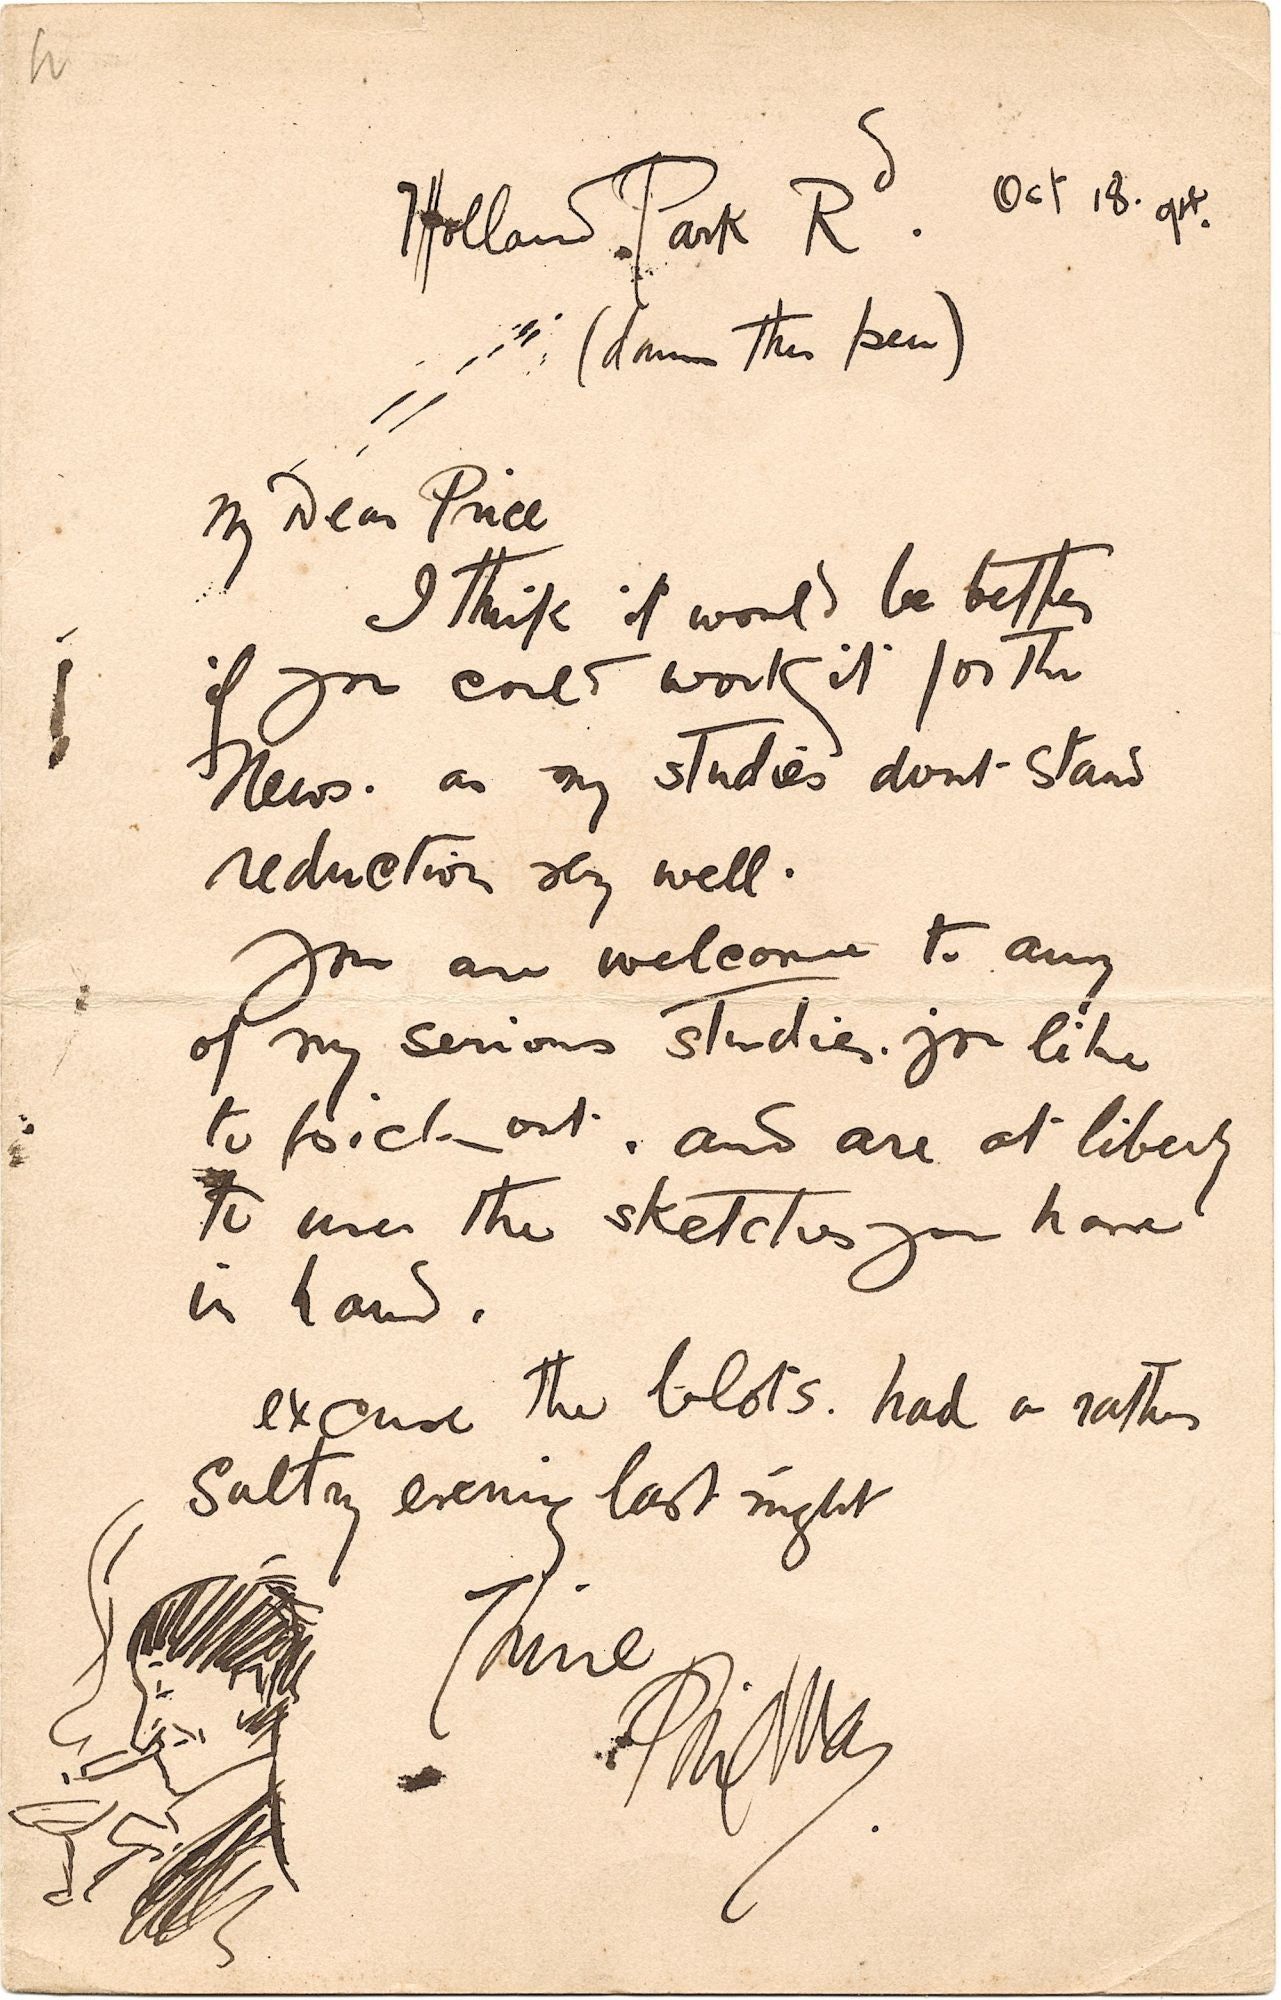 Holland Park Rd. Oct 18. 94.
(damn this pen)
My Dear Price
I think it would be better
if you could work it for the
News. as my studies dont stand
reduction very well.
You are welcome to any
of my serious studies. you like
to pick out. and are at liberty
to use the sketches you have
in hand.
excuse the blots. had a rather
Sultry evening last night
Thine
Phil May